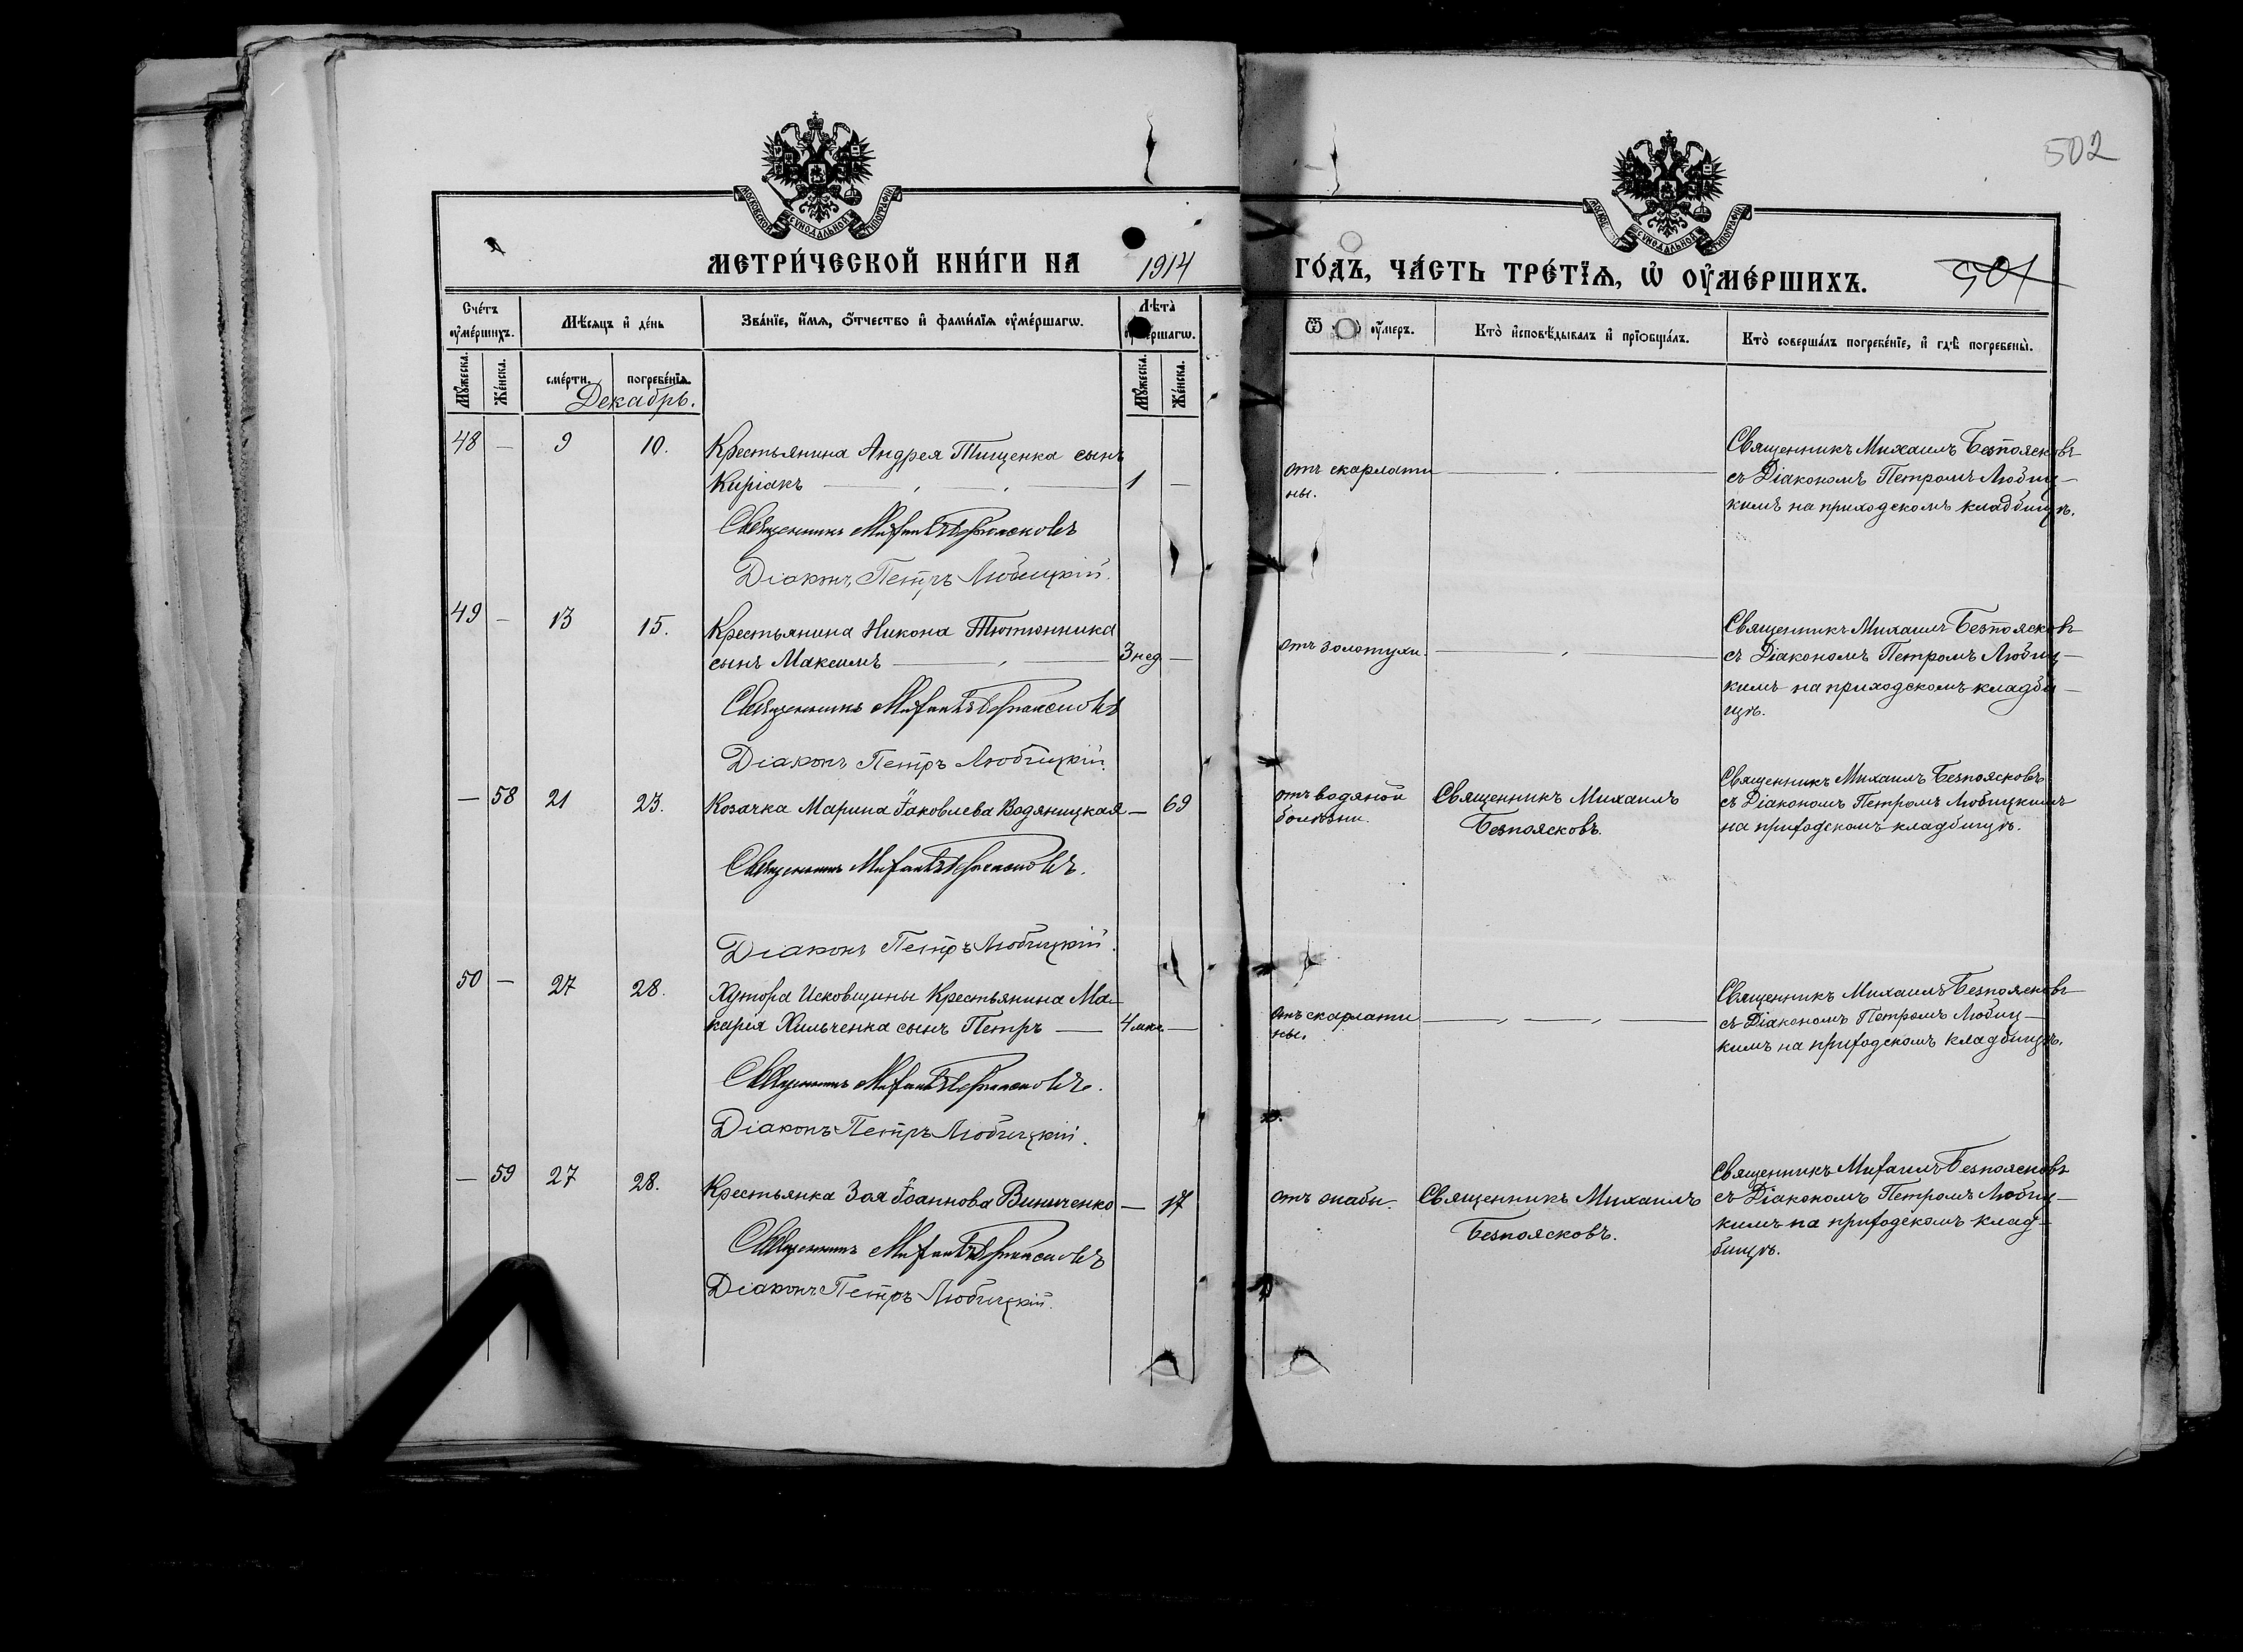 502
МОСКОВСКОЙ СѴНОДАЛЬНОЙ ТИПОГРАФІИ
СѴНОДАЛЬНОЙ ТИПОГРАФІИ
МЕТРИ́ЧЕСКОЙ КНИ́ГИ НА 1914
ГО́ДЪ, ЧА́СТЬ ТРЕ́ТЇѦ, Ѡ҆ ОУ҆МЕ́РШИХЪ.
501
Сче́тъ оу҆ме́ршихъ.
Мѣ́сяцъ и҆ де́нь
Зва́нїе, и҆́мѧ, ѻ҆́тчество и҆ фами́лїѧ оу҆ме́ршагѡ.
Лѣ́та̀
Ѿ оу҆́меръ.
Кто̀ и҆сповѣ́дывалъ и҆ прїѻбща́лъ.
Кто̀ соверша́лъ погребе́нїе, и҆ гдѣ̀ погребены̀.
Мꙋ́жеска.
Же́нска.
сме́рти.
погребе́нїѧ.
Мꙋ́жеска.
Же́нска.
Декабрь.
48 — 9 10.
Крестьянина Андрея Тищенка сынъ
Киріакъ — 1 —
Священникъ Михаилъ Безпоясковъ
Діаконъ Петръ Любицкій.
отъ скарлати
ны.
Священникъ Михаилъ Безпоясковъ
съ Діакономъ Петромъ Любиц—
кимъ на приходскомъ кладбищѣ.
49 — 13 15.
Крестьянина Никона Тютюнника
сынъ Максимъ — 3 нед —
Священникъ Михаилъ Безпоясковъ
Діаконъ Петръ Любицкій.
отъ золотухи.
Священникъ Михаилъ Безпоясковъ
съ Діакономъ Петромъ Любиц—
кимъ на приходскомъ кладби—
щѣ.
— 58 21 23.
Козачка Марина Іаковлева Водяницкая — 69
Священникъ Михаилъ Безпоясковъ.
Діаконъ Петръ Любицкій.
отъ водяной
болѣзни.
Священникъ Михаилъ
Безпоясковъ.
Священникъ Михаилъ Безпоясковъ
съ Діакономъ Петромъ Любицкимъ
на приходскомъ кладбищѣ.
50 — 27 28.
Хутора Исковщины Крестьянина Ма—
карія Хильченка сынъ Петръ — 4 мѣс —
Священникъ Михаилъ Безпоясковъ.
Діаконъ Петръ Любицкій.
отъ скарлати
ны.
Священникъ Михаилъ Безпоясковъ
съ Діакономъ Петромъ Любиц—
кимъ на приходскомъ кладбищѣ.
— 59 27 28.
Крестьянка Зоя Іоаннова Виниченко — 17
Священникъ Михаилъ Безпоясковъ
Діаконъ Петръ Любицкій.
отъ
Священникъ Михаилъ
Безпоясковъ.
Священникъ Михаилъ Безпоясковъ
съ Діакономъ Петромъ Любиц—
кимъ на приходскомъ клад—
бищѣ.